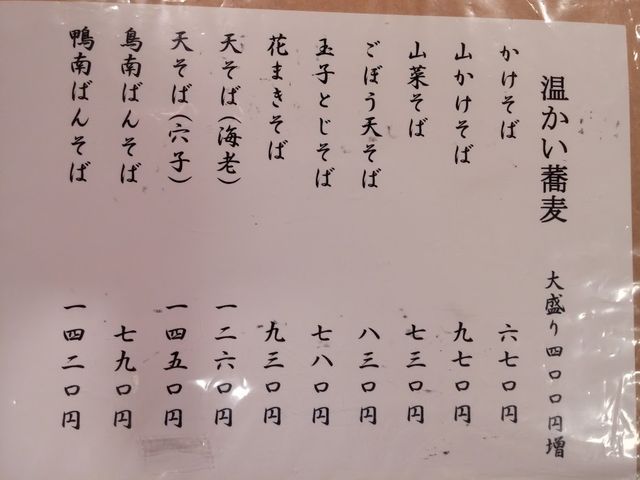 温かい蕎麦 大盛り四〇〇円増
かけそば 六七〇円
山かけそば 九七〇円
山菜そば 七三〇円
ごぼう天そば 八三〇円
玉子とじそば 七八〇円
花まきそば 九三〇円
天そば(海老) 一二六〇円
天そば(穴子) 一四五〇円
鳥南ばんそば 七九〇円
鴨南ばんそば 一四二〇円